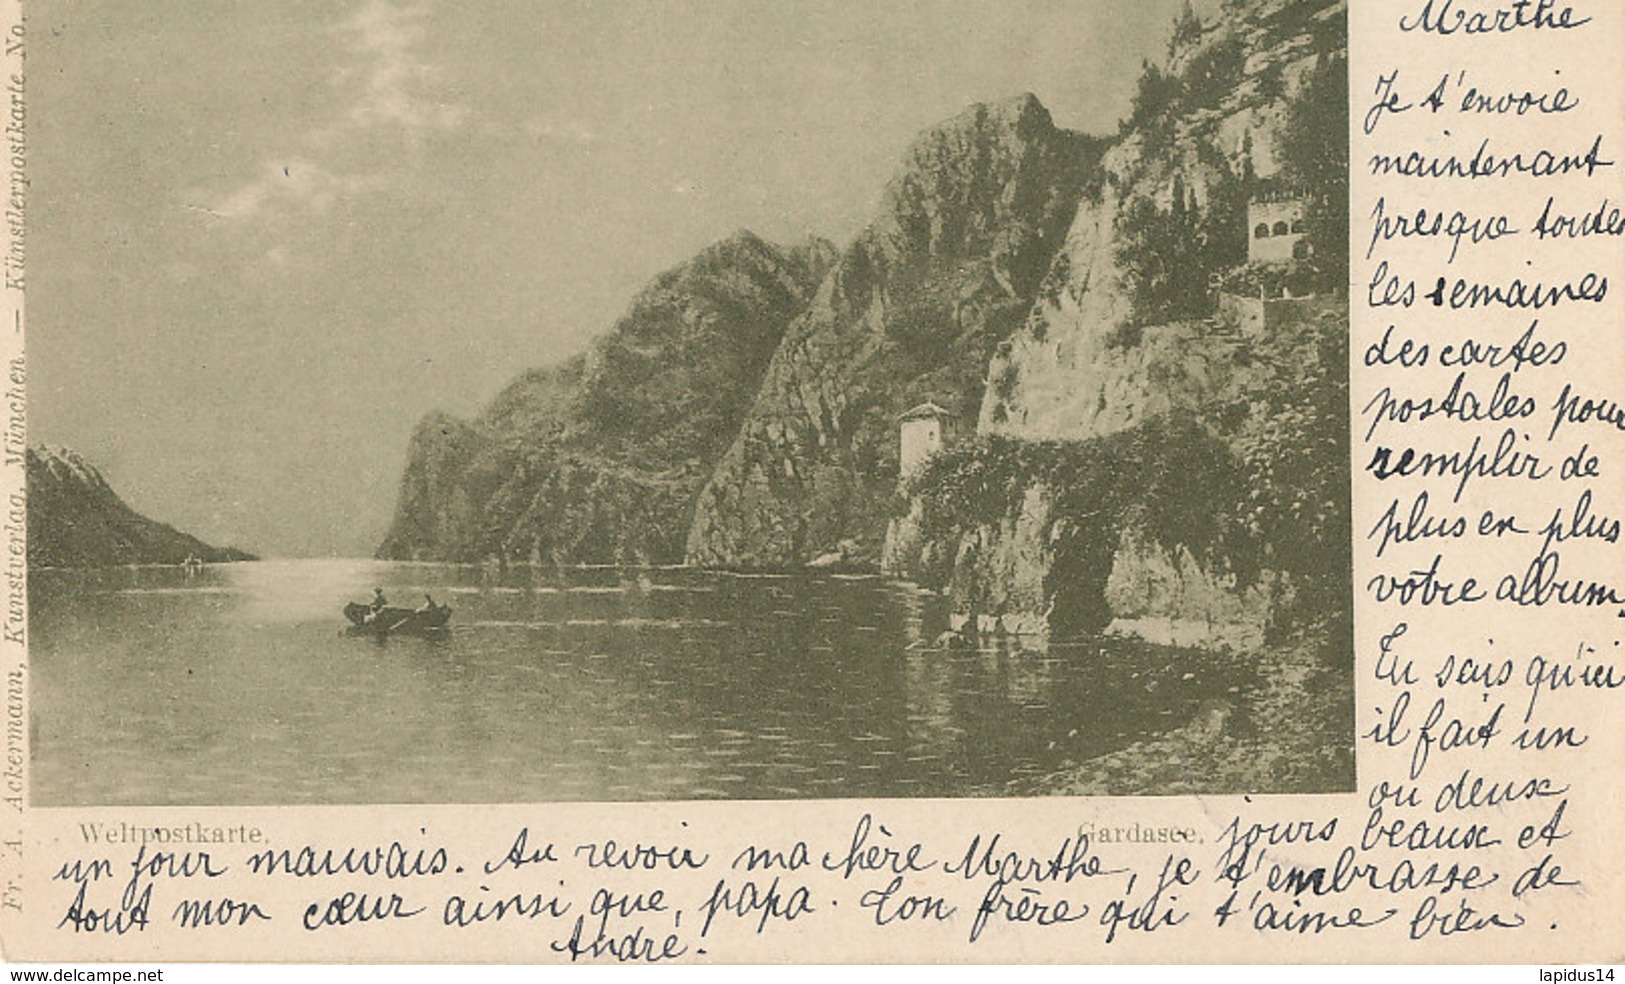 Marthe
Je t'envoie
maintenant
presque toutes
les semaines
des cartes
postales pour
remplir de
plus en plus
votre album.
Tu sais qu'ici
il fait un
ou deux
jours beaux et
un jour mauvais. Au revoir ma chère Marthe, je t'embrasse de
tout mon cœur ainsi que, papa. Ton frère qui t'aime bien.
André.
Weltpostkarte.
Gardasee.
Fr. A. Ackermann, Kunstverlag, München. — Künstlerpostkarte No.
www.delcampe.net
lapidus14